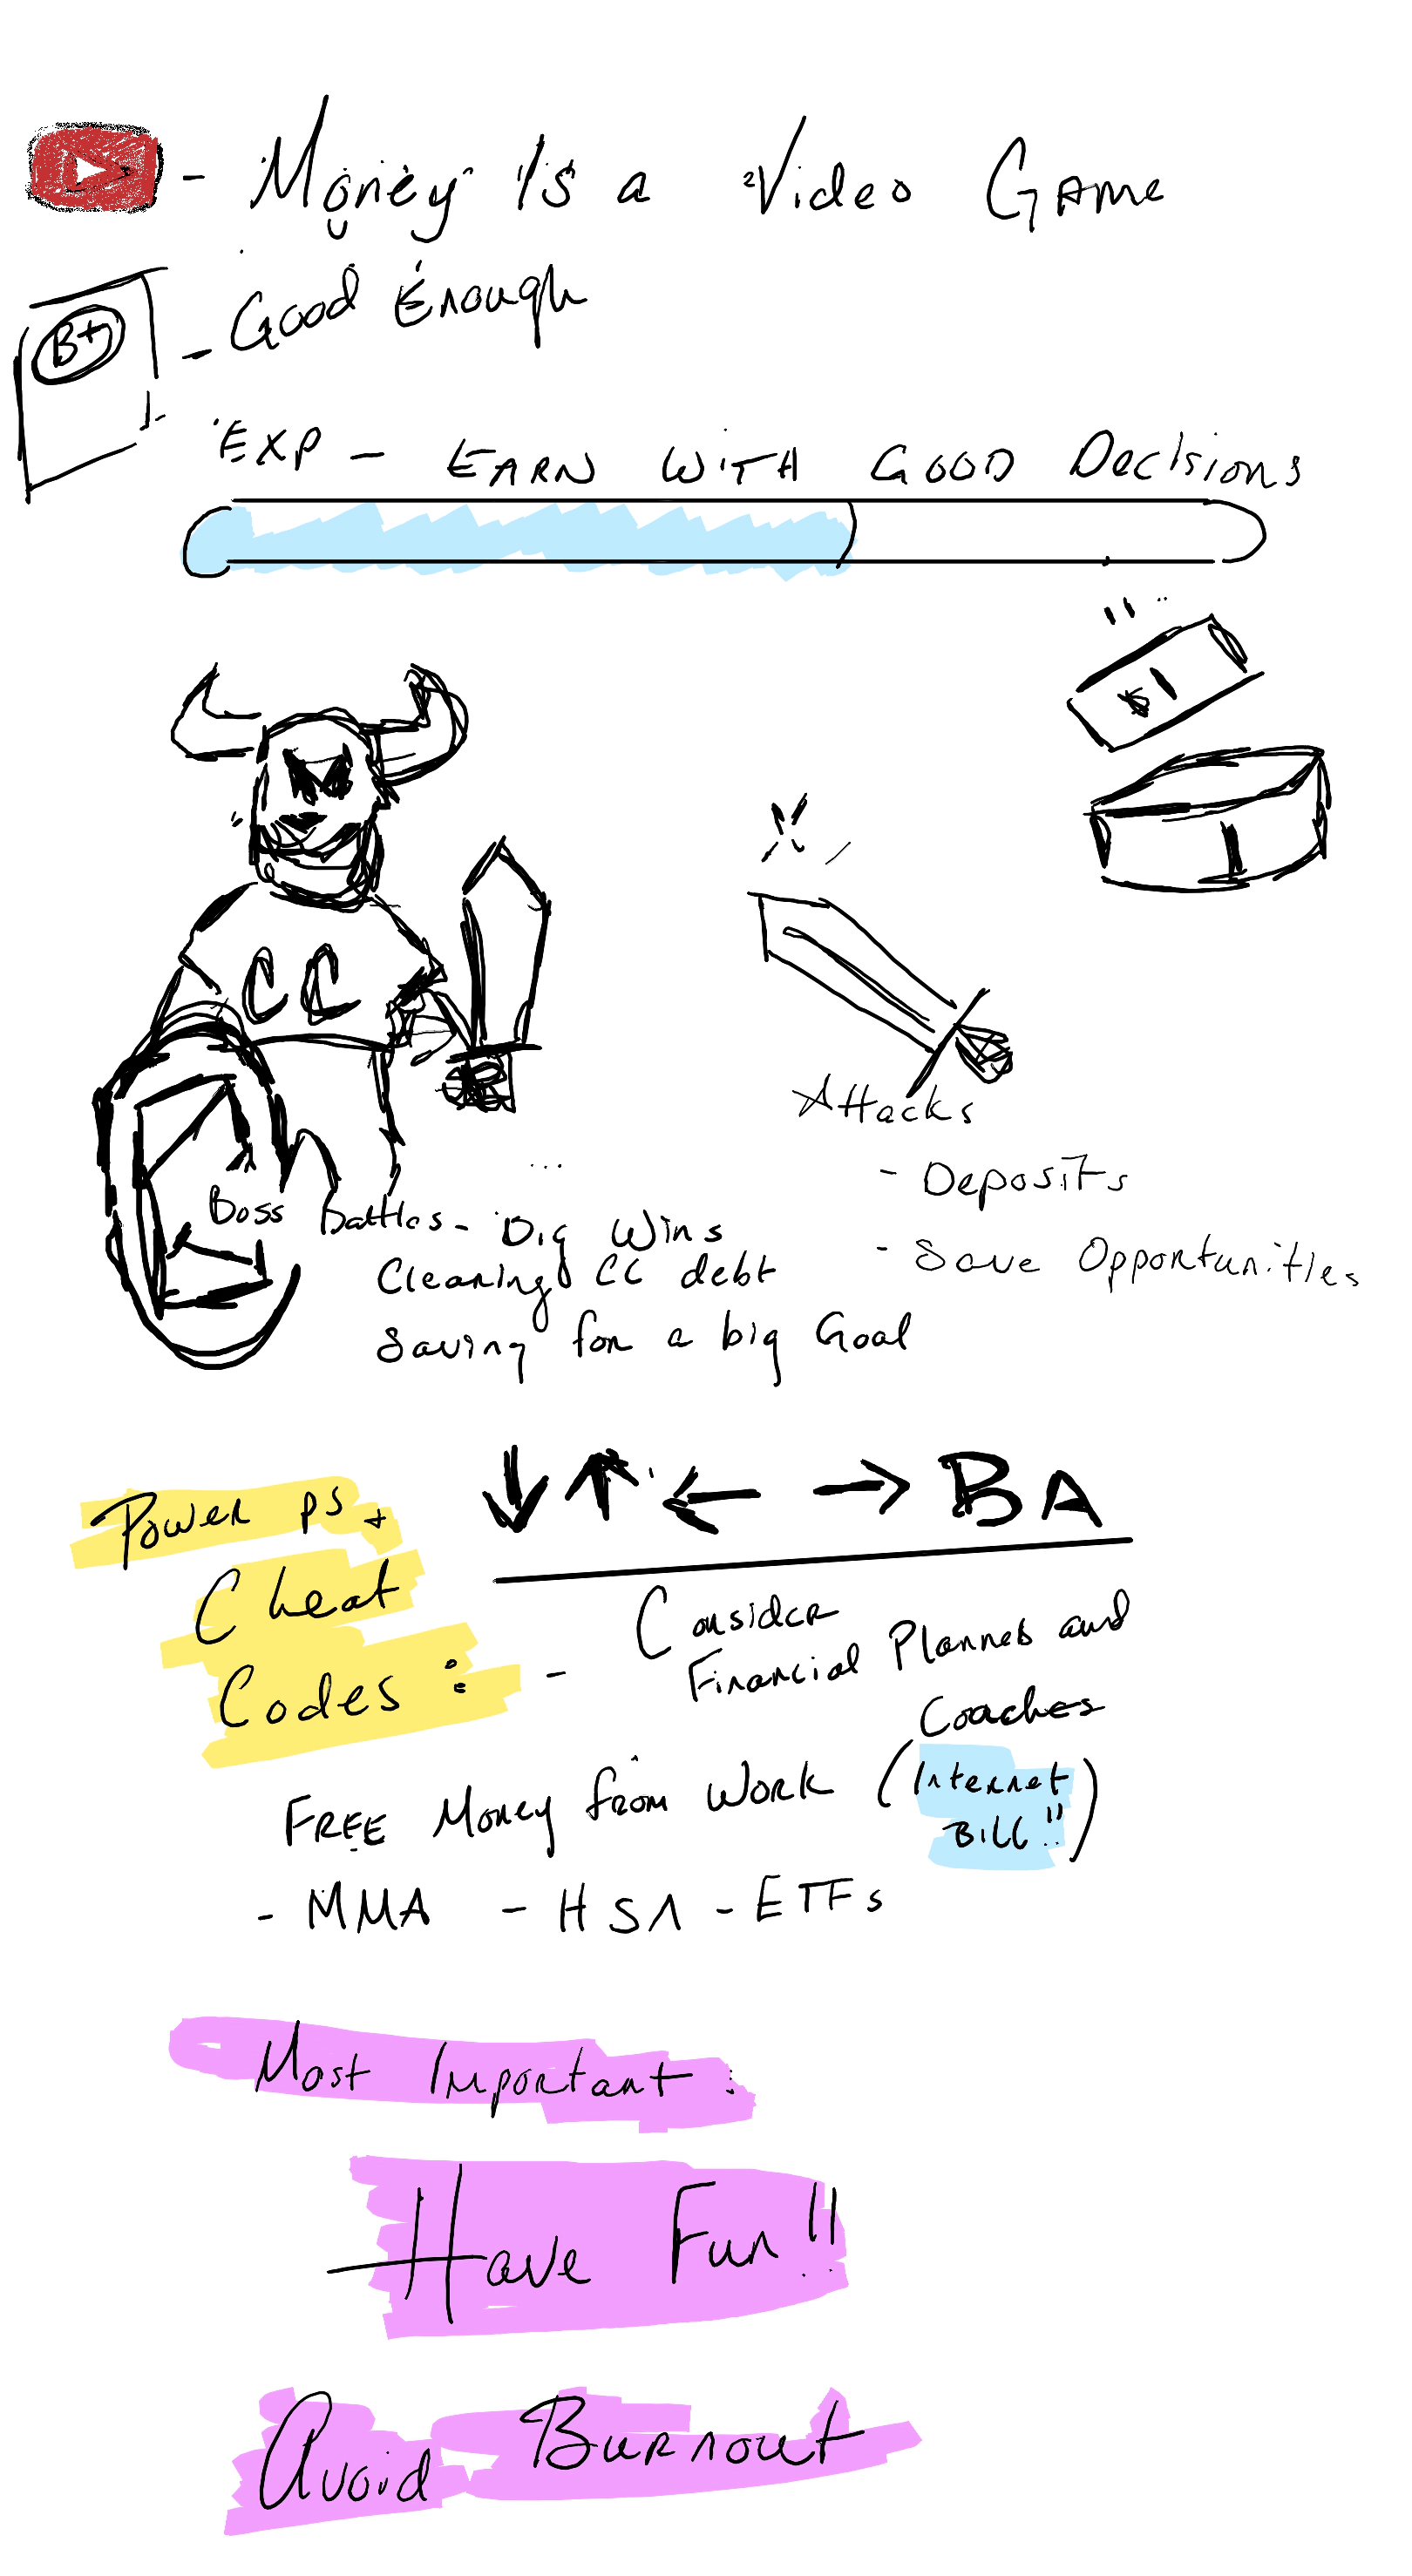 - Money Is a Video Game
B+
- Good Enough
EXP - EARN WITH GOOD Decisions
$1
CC
Attacks
- Deposits
- Save Opportunities
Boss Battles - Big Wins
Clearing CC debt
Saving for a big Goal
↓↑← → BA
Power ps +
Cheat
Codes :
- Consider
Financial Planners and
Coaches
FREE Money from Work (Internet
Bill!!)
- MMA - HSA - ETFs
Most Important :
Have Fun!!
Avoid Burnout